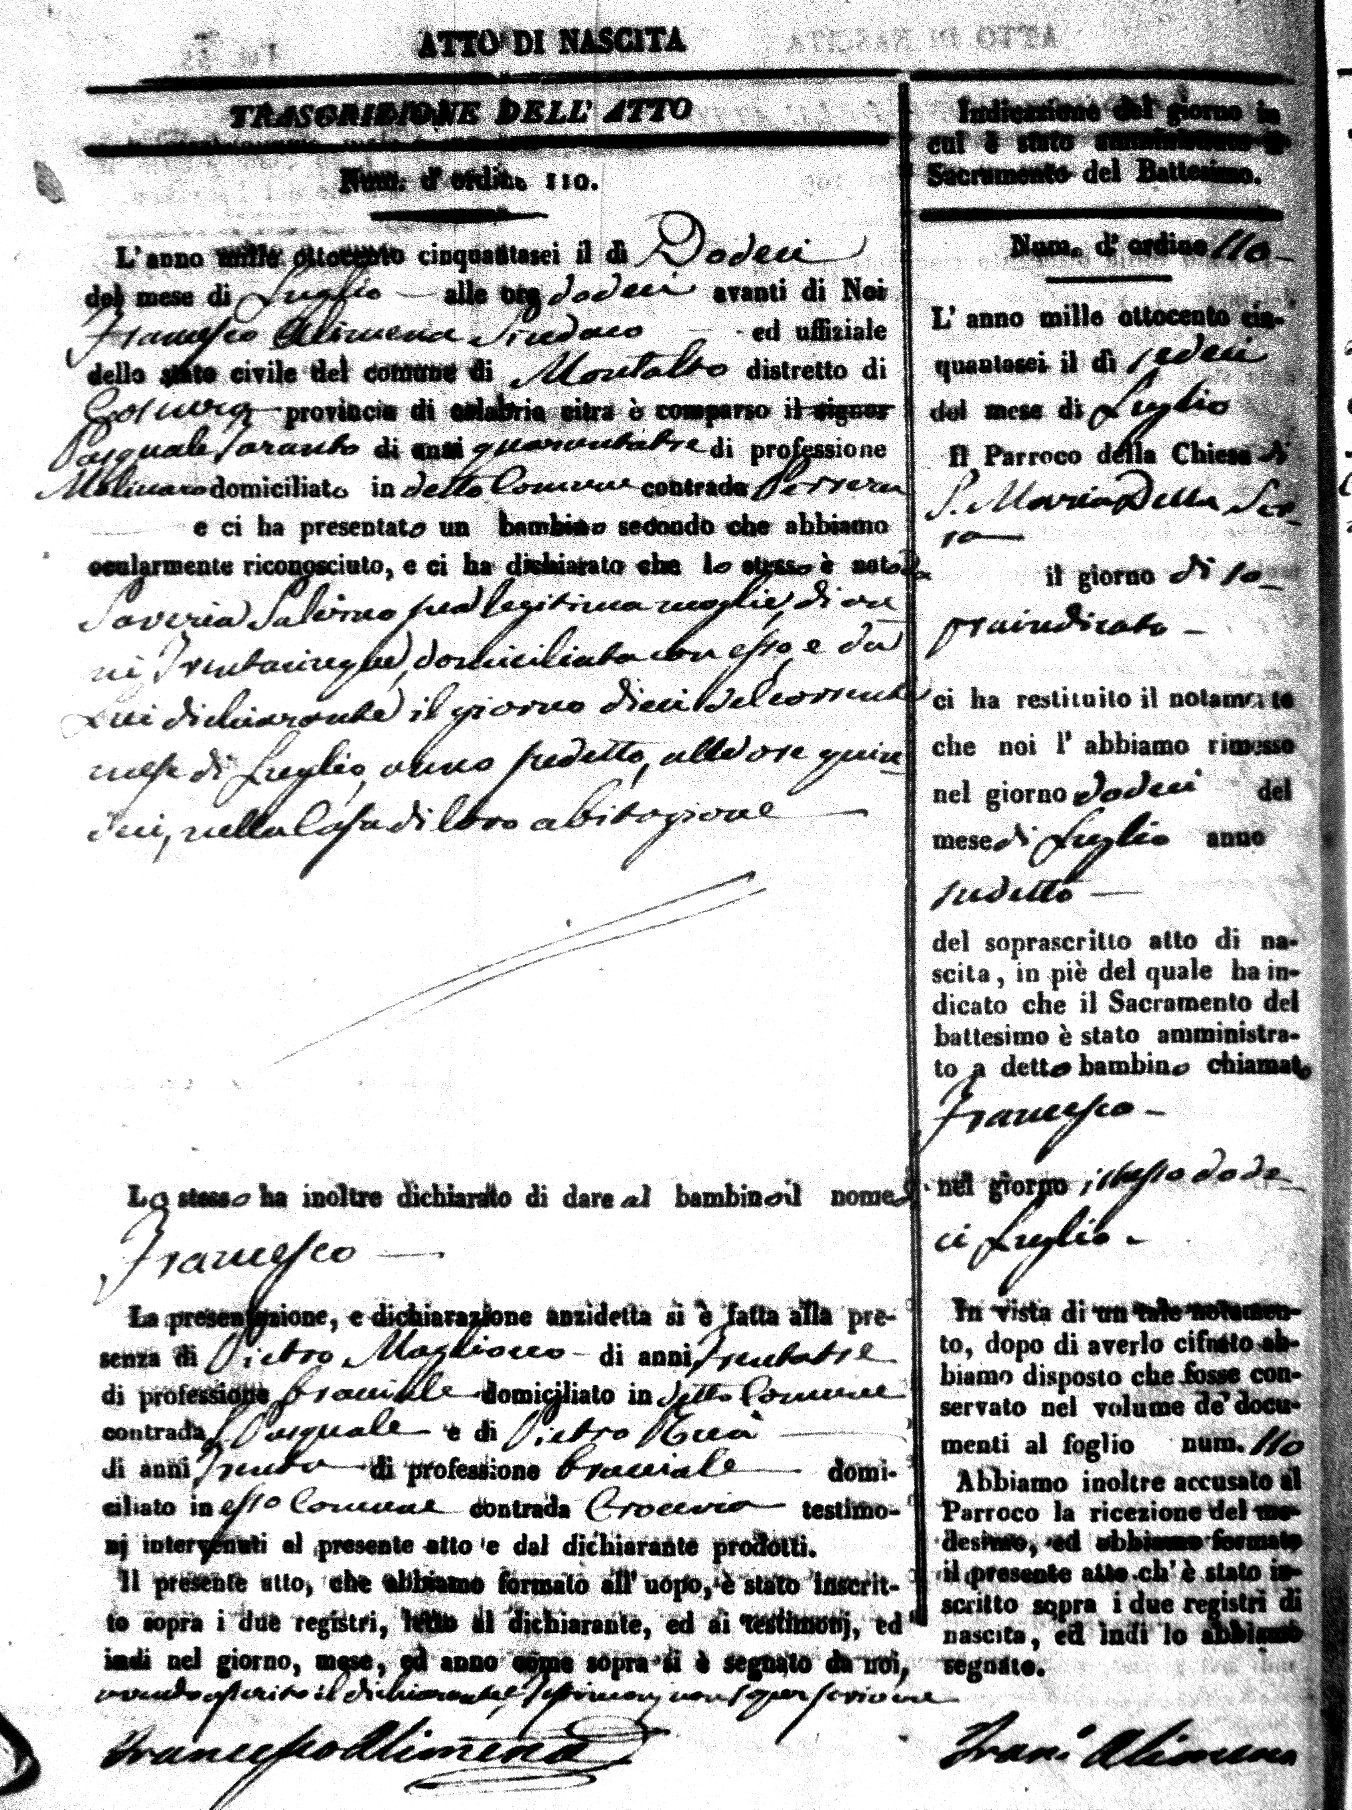 ATTO DI NASCITA
TRASCRIZIONE DELL' ATTO
Num. d' ordine 110.
L' anno mille ottocento cinquantasei il dì Dodeci
del mese di Luglio alle ore dodeci avanti di Noi
Francesco Alimena Sindaco ed uffiziale
dello stato civile del comune di Montalto distretto di
Cosenza provincia di calabria citra è comparso il signor
Pasquale Taranto di anni quarantatre di professione
Molinaro domiciliato in detto Comune contrada
e ci ha presentato un bambino secondo che abbiamo
ocularmente riconosciuto, e ci ha dichiarato che lo stesso è nato da
Saveria Salerno sua legitima moglie, di an
ni Trentacinque, domiciliata con esso, e da
Lui dichiarante il giorno dieci del corrente
mese di Luglio, anno sudetto, alle ore quin
dici, nella Casa di loro abitazione
Lo stesso ha inoltre dichiarato di dare al bambino il nome di
Francesco
La presentazione, e dichiarazione anzidetta si è fatta alla pre-
senza di Pietro Magliocco di anni Trentatre
di professione bracciale domiciliato in detto Comune
contrada S. Pasquale e di Pietro
di anni Trenta di professione bracciale domi-
ciliato in esso Comune contrada Crocevia testimo-
nj intervenuti al presente atto e dal dichiarante prodotti.
Il presente atto, che abbiamo formato all' uopo, è stato inscrit-
to sopra i due registri, letto al dichiarante, ed ai testimonj, ed
indi nel giorno, mese, ed anno come sopra si è segnato da noi,
avendo asserito il dichiarante, e Testimonj non saper scrivere
Francesco Alimena
Indicazione del giorno in
cui è stato amministrato il
Sacramento del Battesimo.
Num. d' ordine 110
L' anno mille ottocento cin-
quantasei il dì sedeci
del mese di Luglio
Il Parroco della Chiesa di
S. Maria Della Ser
ra
il giorno di so
praindicato
ci ha restituito il notamento
che noi l' abbiamo rimesso
nel giorno dodeci del
mese di Luglio anno
sudetto
del soprascritto atto di na-
scita, in piè del quale ha in-
dicato che il Sacramento del
battesimo è stato amministra-
to a detto bambino chiamato
Francesco
nel giorno istesso dode
ci Luglio.
In vista di un tale notamen-
to, dopo di averlo cifrato ab-
biamo disposto che fosse con-
servato nel volume de' docu-
menti al foglio num. 110
Abbiamo inoltre accusato al
Parroco la ricezione del me-
desimo, ed abbiamo formato
il presente atto ch' è stato in-
scritto sopra i due registri di
nascita, ed indi lo abbiamo
segnato.
Franc Alimena